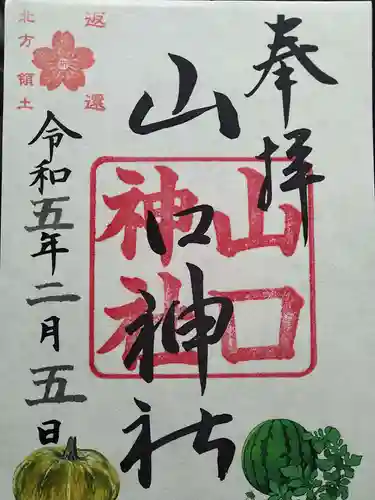 奉拝
山口神社
山口
神社
令和五年二月五日
返還
北方領土